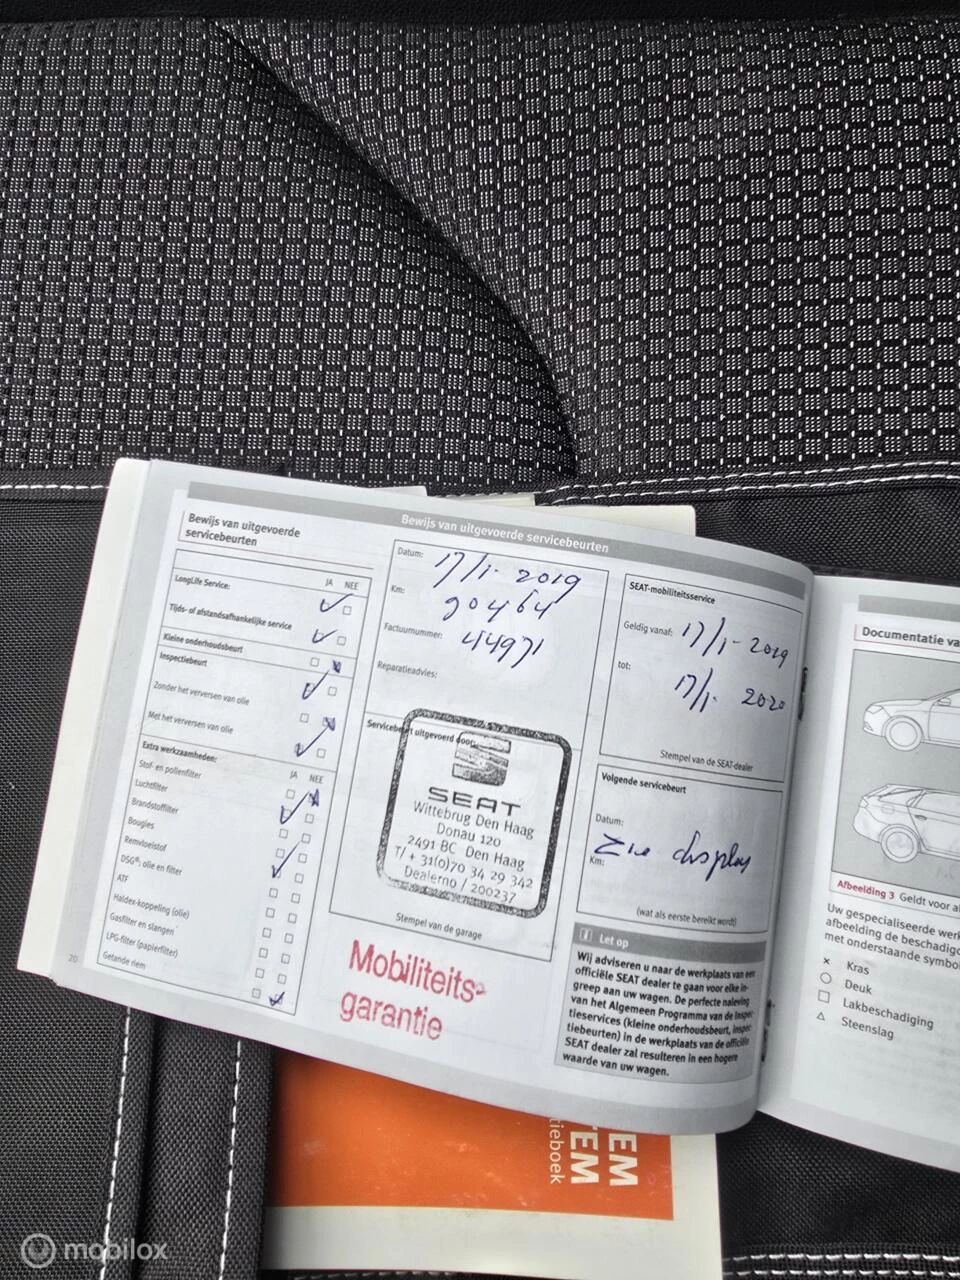 Bewijs van uitgevoerde
servicebeurten
JA NEE
LongLife Service:
Tijds- of afstandsafhankelijke service
Kleine onderhoudsbeurt
Inspectiebeurt
Zonder het verversen van olie
Met het verversen van olie
Extra werkzaamheden:
JA NEE
Stof- en pollenfilter
Luchtfilter
Brandstoffilter
Bougies
Remvloeistof
DSG®: olie en filter
ATF
Haldex-koppeling (olie)
Gasfilter en slangen
LPG-filter (papierfilter)
Getande riem
20
Bewijs van uitgevoerde servicebeurten
Datum: 17/1- 2019
Km: 90464
Factuurnummer: 44971
Reparatieadvies:
Servicebeurt uitgevoerd door:
SEAT
Wittebrug Den Haag
Donau 120
2491 BC Den Haag
T/ + 31(0)70 34 29 342
Dealerno / 200237
Stempel van de garage
Mobiliteits-
garantie
SEAT-mobiliteitsservice
Geldig vanaf: 17/1-2019
tot: 17/1. 2020
Stempel van de SEAT-dealer
Volgende servicebeurt
Datum:
Zie display
Km:
(wat als eerste bereikt wordt)
i Let op
Wij adviseren u naar de werkplaats van een
officiële SEAT dealer te gaan voor elke in-
greep aan uw wagen. De perfecte naleving
van het Algemeen Programma van de Inspec-
tieservices (kleine onderhoudsbeurt, inspec-
tiebeurten) in de werkplaats van de officiële
SEAT dealer zal resulteren in een hogere
waarde van uw wagen.
Documentatie va
Afbeelding 3 Geldt voor al
Uw gespecialiseerde werk
afbeelding de beschadig
met onderstaande symbo
× Kras
○ Deuk
□ Lakbeschadiging
△ Steenslag
TEM
TEM
tieboek
mobilox